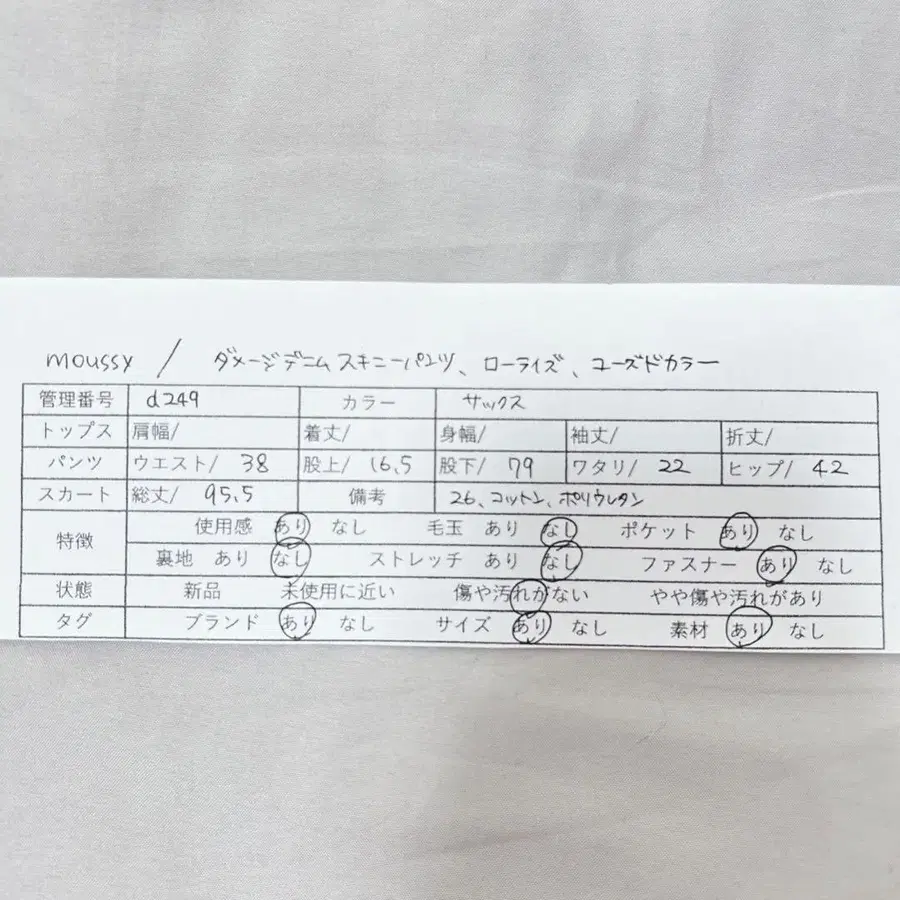 moussy / ダメージデニムスキニーパンツ、ローライズ、ユーズドカラー
管理番号 d249 カラー サックス
トップス 肩幅/ 着丈/ 身幅/ 袖丈/ 裄丈/
パンツ ウエスト/ 38 股上/ 16,5 股下/ 79 ワタリ/ 22 ヒップ/ 42
スカート 総丈/ 95,5 備考 26、コットン、ポリウレタン
特徴 使用感 あり なし 毛玉 あり なし ポケット あり なし
裏地 あり なし ストレッチ あり なし ファスナー あり なし
状態 新品 未使用に近い 傷や汚れがない やや傷や汚れがあり
タグ ブランド あり なし サイズ あり なし 素材 あり なし